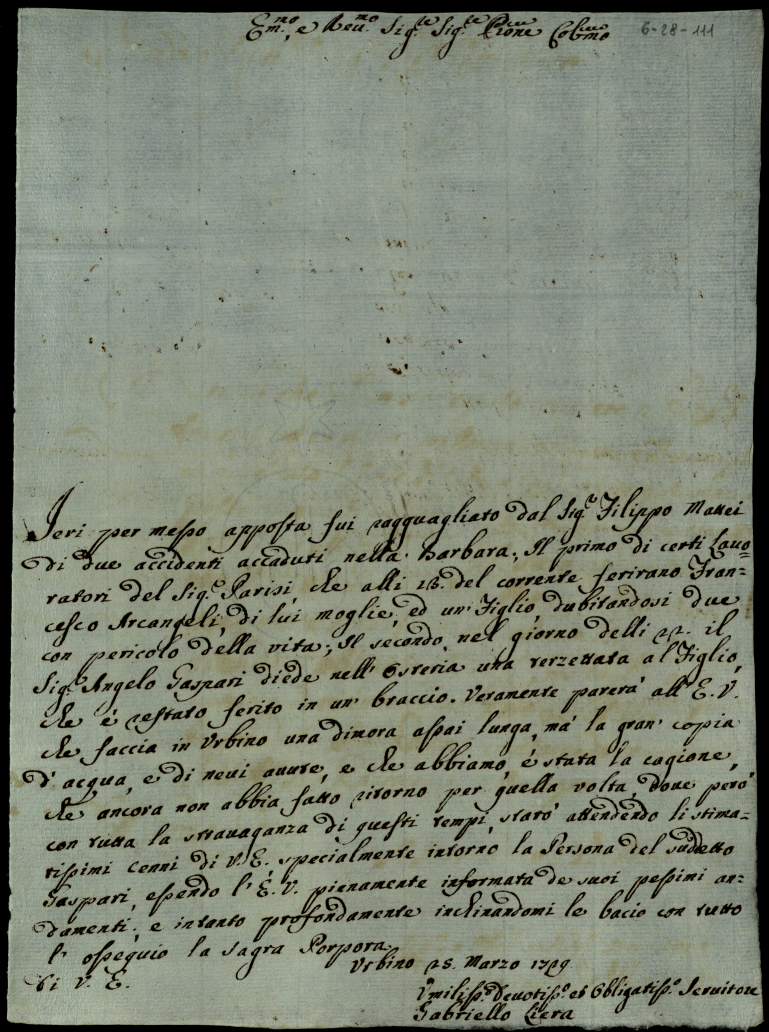 Em.mo, e Reu.mo Sig.re Sig.re Prone Colmo
6-28-111
Ieri per messo apposta fui ragguagliato dal Sig.r Filippo Mattei
di due accidenti accaduti nella Barbara; Il primo di certi Lauo=
ratori del Sig.r Parisi, che alli 18. del corrente ferirano Fran=
cesco Arcangeli, di lui moglie, ed un' Figlio, dubitandosi due
con pericolo della vita; Il secondo, nel giorno delli 22. il
Sig.r Angelo Gaspari diede nell' Osteria una terzettata al Figlio,
che è restato ferito in un' braccio. Veramente parerà all' E. V.
che faccia in Urbino una dimora assai lunga, mà la gran' copia
d' acqua, e di neui auute, e che abbiamo, è stata la cagione,
che ancora non abbia fatto ritorno per quella volta, doue però
con tutta la strauaganza di questi tempi, starò attendendo li stima=
tissimi cenni di V. E. specialmente intorno la Persona del suddetto
Gaspari, essendo l' E. V. pienamente informata de suoi pessimi an=
damenti; e intanto profondamente inchinandomi le bacio con tutto
l' ossequio la sagra Porpora
Di V. E.
Urbino 25. Marzo 1729
Vmiliss.o Deuotiss.o et Obligatiss.o Seruitore
Gabriello Liera